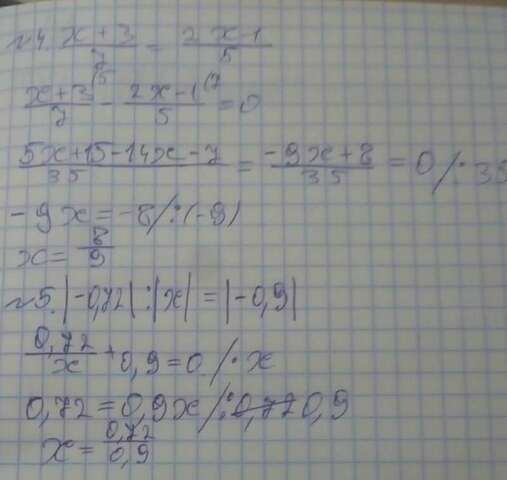 №4. (x+3)/7 = (2x-1)/5
(x+3)/7 (5 - (2x-1)/5 (7 = 0
(5x+15-14x-7)/35 = (-9x+8)/35 = 0 /: 35
-9x = -8 /:(-9)
x = 8/9
№5. |-0,72| : |x| = |-0,9|
0,72/x + 0,9 = 0 /· x
0,72 = 0,9x /: 0,72 0,9
x = 0,72/0,9